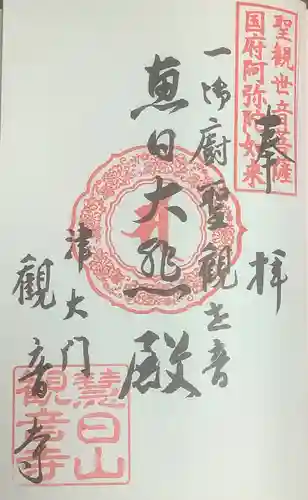 聖観世音菩薩
国府阿弥陀如来
奉拝
一御厨聖観世音
恵日大悲殿
津大门
觀音寺
慧日山
観音寺